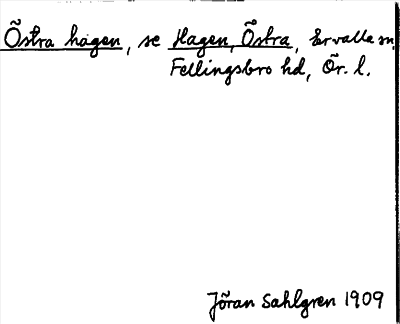 Östra hagen, se Hagen, Östra, Ervalla sn,
Fellingsbro hd, Ör. l.
Jöran Sahlgren 1909